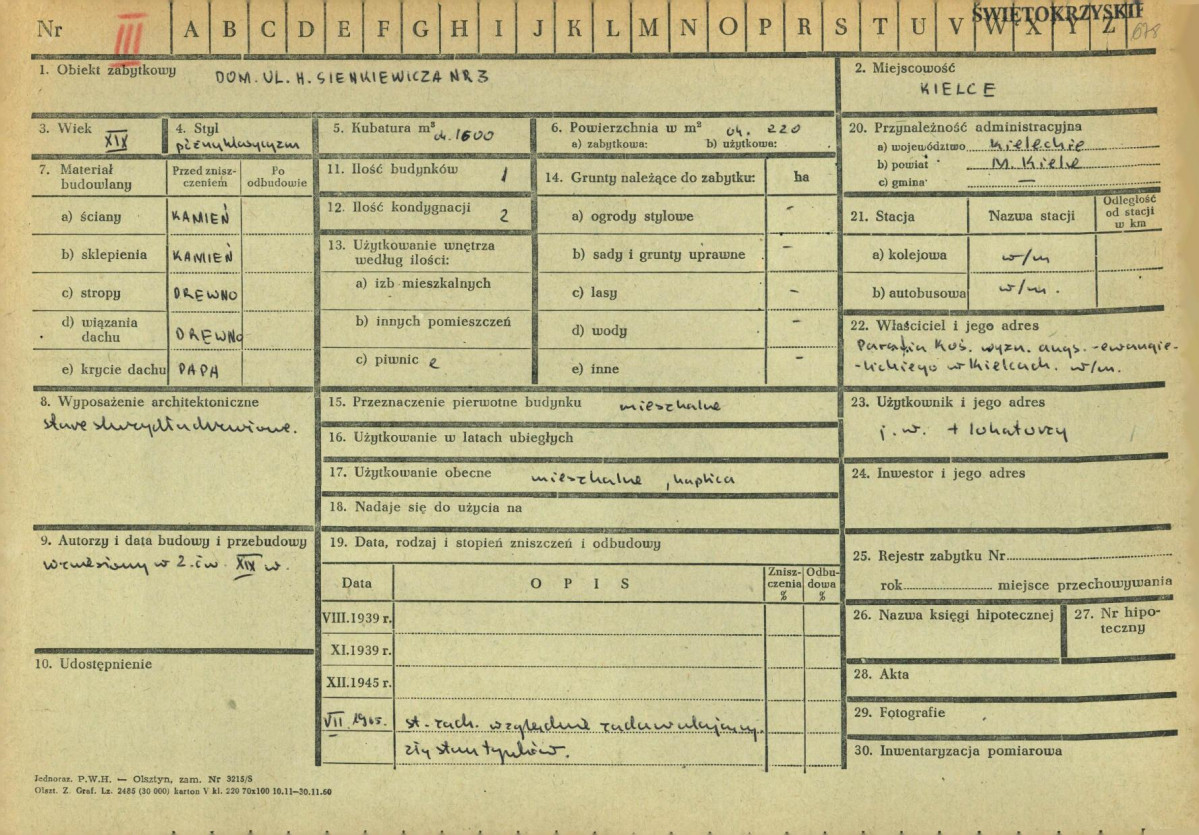 Nr III A B C D E F G H I J K L M N O P R S T U V W X Y Z 678
ŚWIĘTOKRZYSKIE
1. Obiekt zabytkowy DOM. UL. H. SIENKIEWICZA NR 3
2. Miejscowość
KIELCE
3. Wiek
XIX
4. Styl
późny klasycyzm
5. Kubatura m³ ok. 1600
6. Powierzchnia w m² ok. 220
a) zabytkowa: b) użytkowa:
20. Przynależność administracyjna
a) województwo Kieleckie
b) powiat M. Kielce
c) gmina —
7. Materiał budowlany
Przed zniszczeniem
Po odbudowie
a) ściany KAMIEŃ
b) sklepienia KAMIEŃ
c) stropy DREWNO
d) wiązania dachu DREWNO
e) krycie dachu PAPA
11. Ilość budynków 1
12. Ilość kondygnacji 2
13. Użytkowanie wnętrza
według ilości:
a) izb mieszkalnych
b) innych pomieszczeń
c) piwnic 2
14. Grunty należące do zabytku: ha
a) ogrody stylowe -
b) sady i grunty uprawne -
c) lasy -
d) wody -
e) inne -
21. Stacja
Nazwa stacji
Odległość
od stacji
w km
a) kolejowa w/m
b) autobusowa w/m.
22. Właściciel i jego adres
Parafia Koś. wyzn. augs.-ewangie-
-lickiego w Kielcach. w/m.
8. Wyposażenie architektoniczne
stare skrzydła drzwiowe.
15. Przeznaczenie pierwotne budynku mieszkalne
16. Użytkowanie w latach ubiegłych
17. Użytkowanie obecne mieszkalne, kaplica
18. Nadaje się do użycia na
23. Użytkownik i jego adres
j. w. + lokatorzy
24. Inwestor i jego adres
9. Autorzy i data budowy i przebudowy
wzniesiony w 2. ćw. XIX w.
10. Udostępnienie
19. Data, rodzaj i stopień zniszczeń i odbudowy
Data
OPIS
Zniszczenia %
Odbudowa %
VIII.1939 r.
XI.1939 r.
XII.1945 r.
VII. 1965. st. zach. względnie zadawalający.
zły stan tynków.
25. Rejestr zabytku Nr
rok miejsce przechowywania
26. Nazwa księgi hipotecznej
27. Nr hipo-
teczny
28. Akta
29. Fotografie
30. Inwentaryzacja pomiarowa
Jednoraz. P.W.H. — Olsztyn, zam. Nr 3215/S
Olszt. Z. Graf. Lz. 2485 (30 000) karton V kl. 220 70x100 10.11—30.11.60